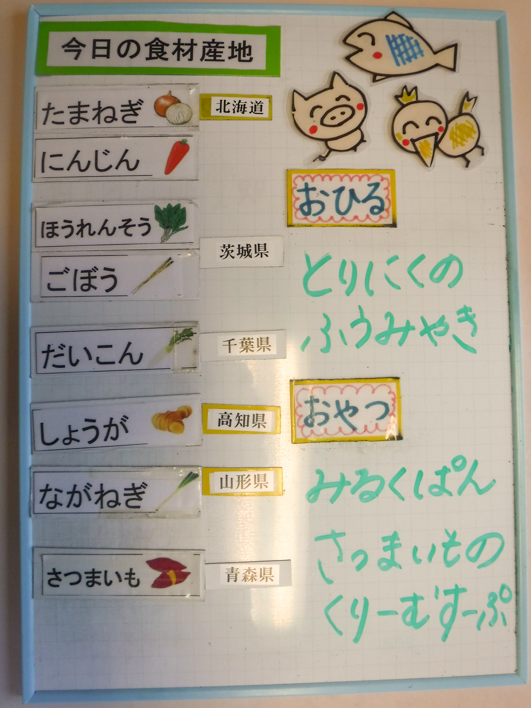 今日の食材産地
たまねぎ 北海道
にんじん
ほうれんそう
茨城県
ごぼう
だいこん 千葉県
しょうが 高知県
ながねぎ 山形県
さつまいも 青森県
おひる
とりにくの
ふうみやき
おやつ
みるくぱん
さつまいもの
くりーむすーぷ